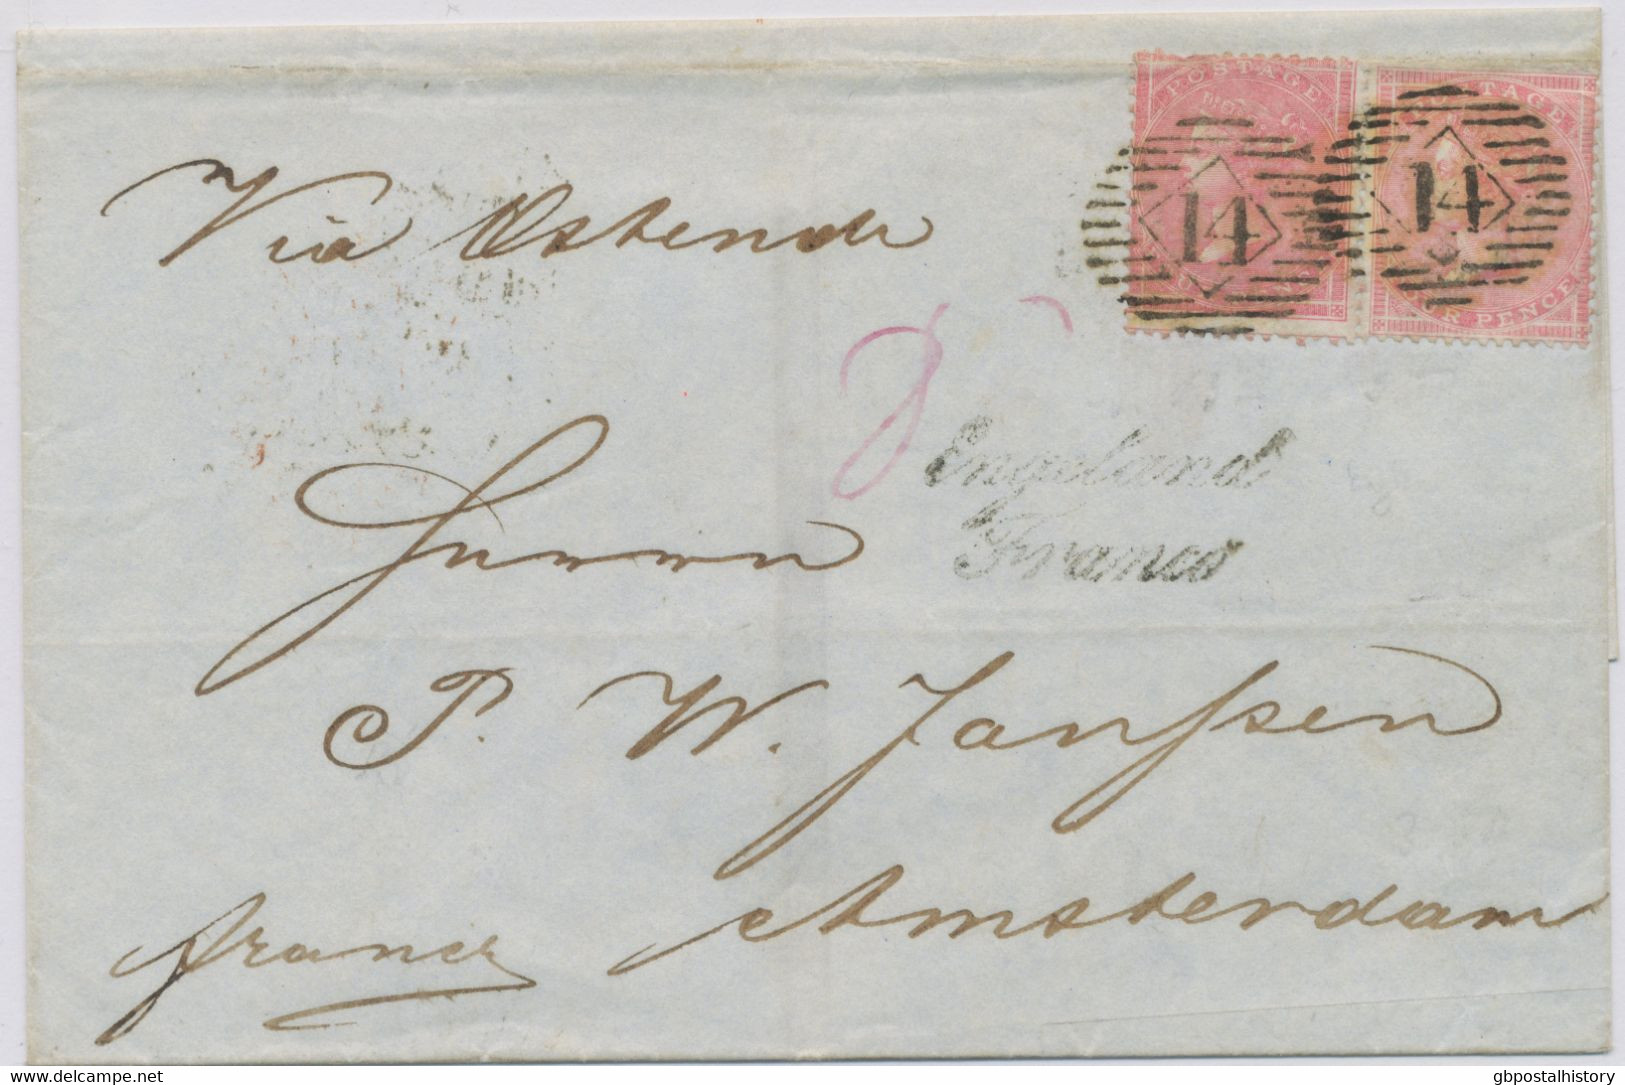 POSTAGE
POSTAGE
14
14
FOUR PENCE
Via Ostende
Engeland
Franco
Herrn
P. W. Janssen
Amsterdam
franco
delcampe.net
gbpostalhistory